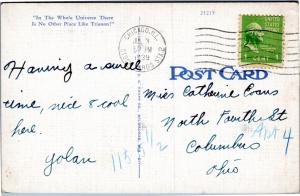 "In The Whole Universe There
Is No Other Place Like Trianon!"
21217
CHICAGO, ILL.
PM
1939
POST CARD
Having a swell
time, nice & cool
here.
Yolan
Miss Catherine Evans
North Fourth St
Apt 4
Columbus
Ohio
115
1/2